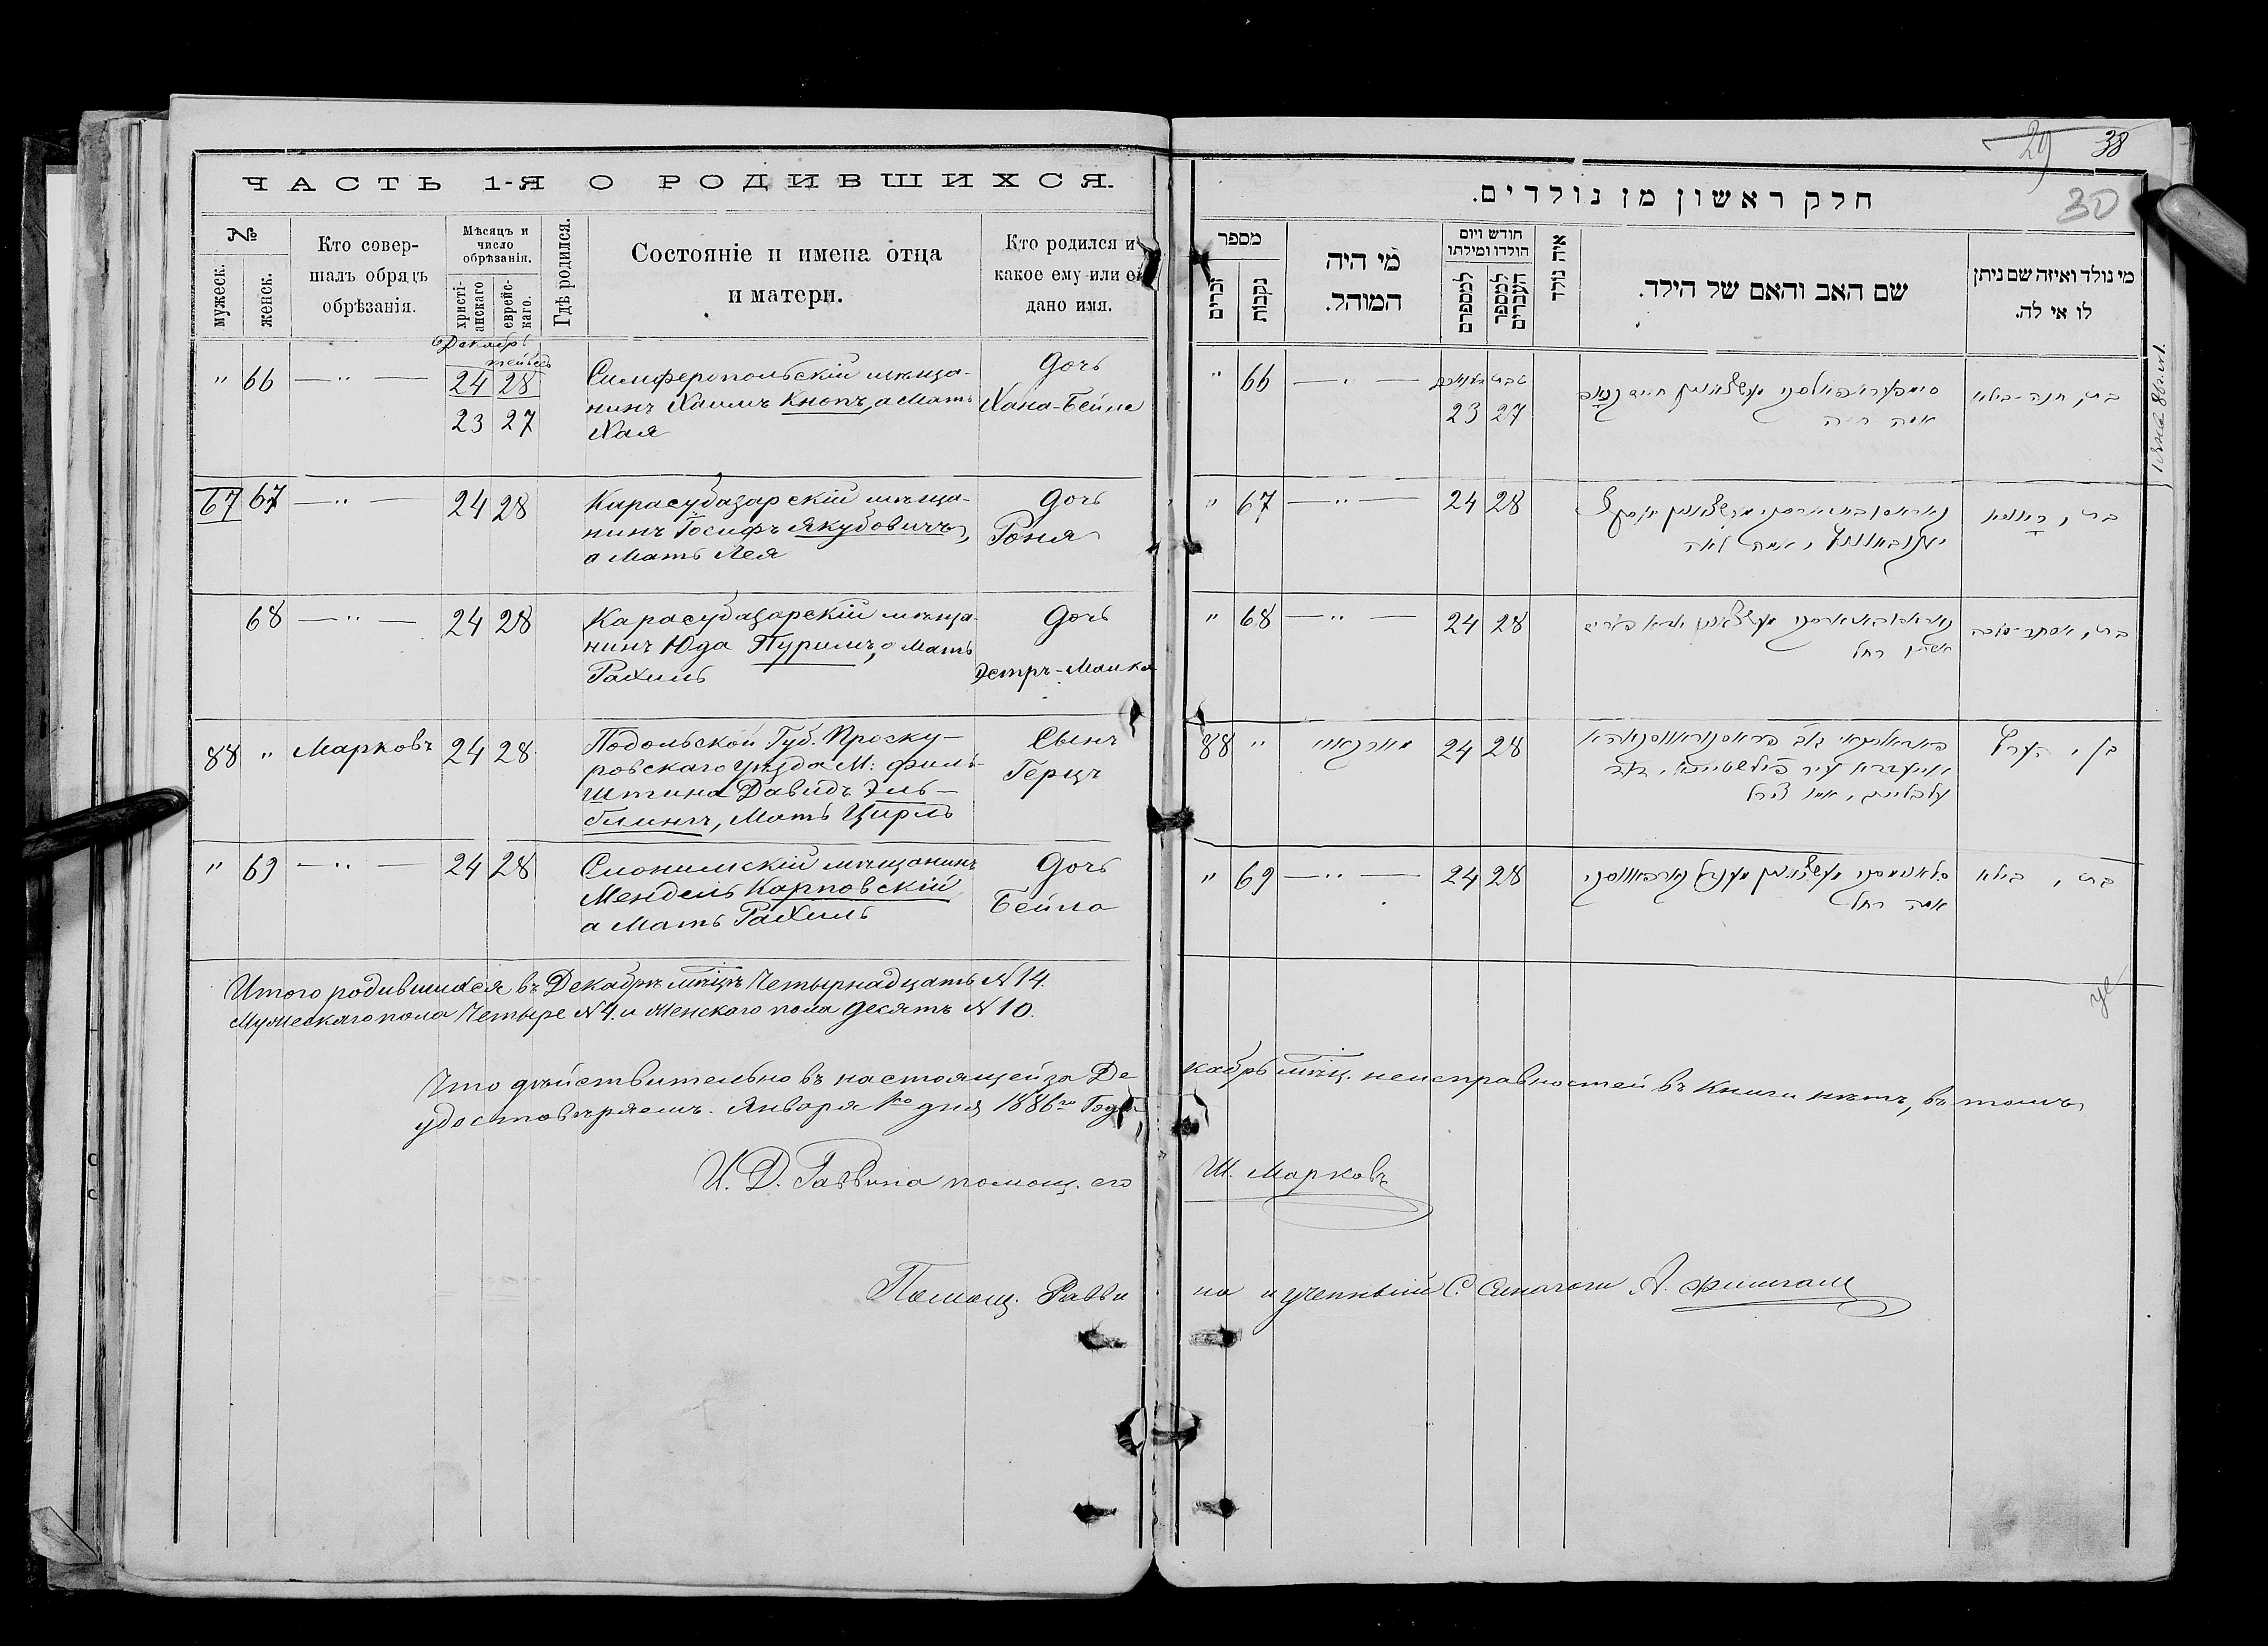 ЧАСТЬ 1-Я О РОДИВШИХСЯ.
№
мужеск.
женск.
Кто совер-
шалъ обрядъ
обрѣзанія.
Мѣсяцъ и
число
обрѣзанія.
христі-
анскаго
еврейс-
каго.
Гдѣ родился.
Состояніе и имена отца
и матери.
Кто родился и
какое ему или ей
дано имя.
Декабрь
" 66 — " — 24 28
23 27
Симферопольскій мѣща-
нинъ Хаимъ Кнопъ, а Мать
Хая
Дочь
Хана-Бейла
67 67 — " — 24 28
Карасубазарскій мѣща-
нинъ Іосифъ Якубовичъ,
а Мать Лея
Дочь
Роня
68 — " — 24 28
Карасубазарскій мѣща-
нинъ Юда Пуримъ, а Мать
Рахиль
Дочь
Эстръ-Малка
88 " Марковъ 24 28
Подольской Губ. Проску-
ровскаго уѣзда М: Филь-
штина Давидъ Эль-
блингъ, Мать Цирль
Сынъ
Герцъ
" 69 — " — 24 28
Слонимскій мѣщанинъ
Мендель Карповскій
а Мать Рахиль
Дочь
Бейла
Итого родившихся въ Декабрѣ мѣцѣ Четырнадцать N 14.
Мужескаго пола Четыре N 4. и Женскаго пола Десять N 10.
Что дѣйствительно въ настоящей за Де
кабрь мѣц. неисправностей въ книги нѣтъ, въ томъ
удостовѣряемъ. Января 1го дня 1886го Года
И. Д. Раввина помощ. его
Ш. Марковъ
Помощ. Равви
на и ученный С. Синагоги А.
29 38
30
חלק ראשון מן נולדים.
מספר
זכרים
נקבות
מי היה
המוהל.
חודש ויום
הולדו ומילתו
למספרם
למספר
העברים
איה נולד
שם האב והאם של הילד.
מי נולד ואיזה שם ניתן
לו אי לה.
" 66 — " —
23 27
סימפעראפאלסקי מעשצאנין חיים קנאפ
אמה חיה
בת, חנה-ביילא
" 67 — " — 24 28
אמה לאה
בת,
" 68 — " — 24 28
רחל
בת, אסתר-מלכה
88 " מארקאוו 24 28
בן, הערץ
" 69 — " — 24 28
סלאנימסקי מעשצאנין מענדל קארפאווסקי
אמה רחל
בת, ביילא